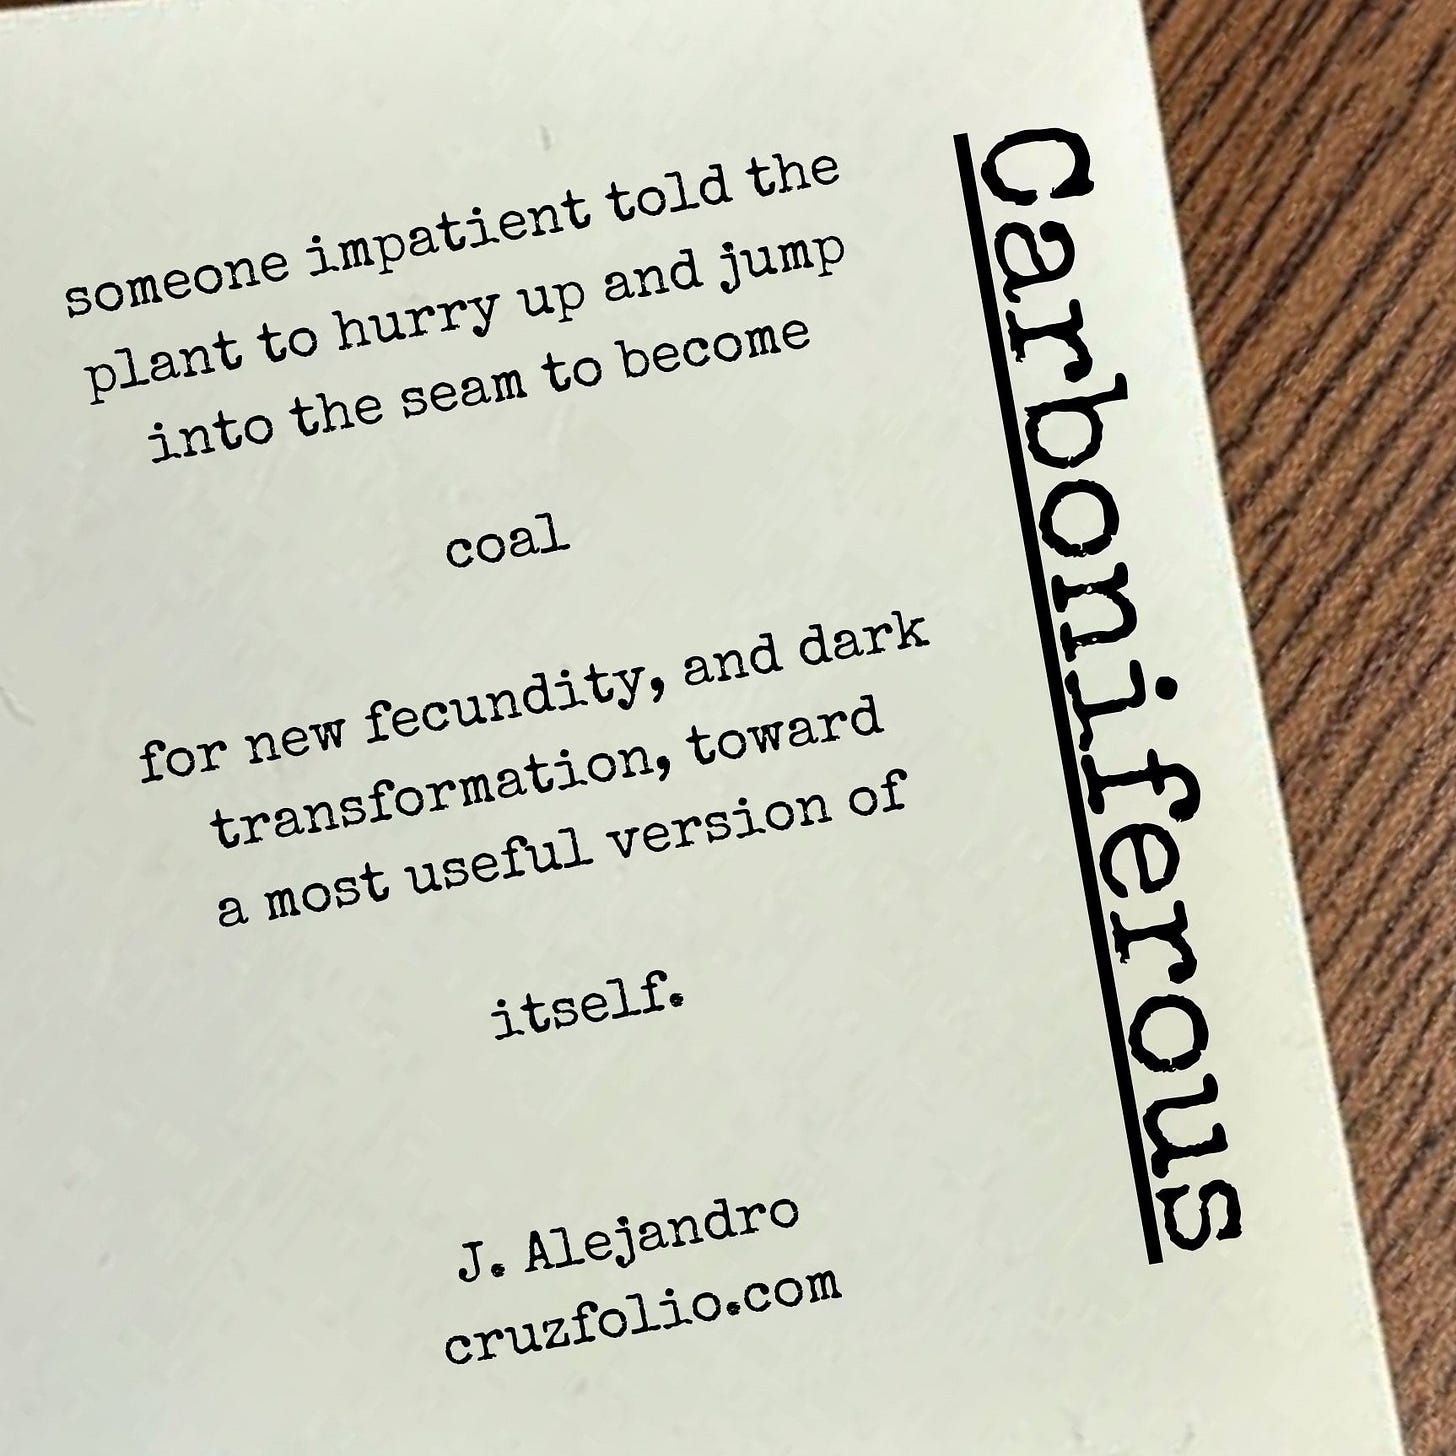 Carboniferous
someone impatient told the
plant to hurry up and jump
into the seam to become
coal
for new fecundity, and dark
transformation, toward
a most useful version of
itself.
J. Alejandro
cruzfolio.com